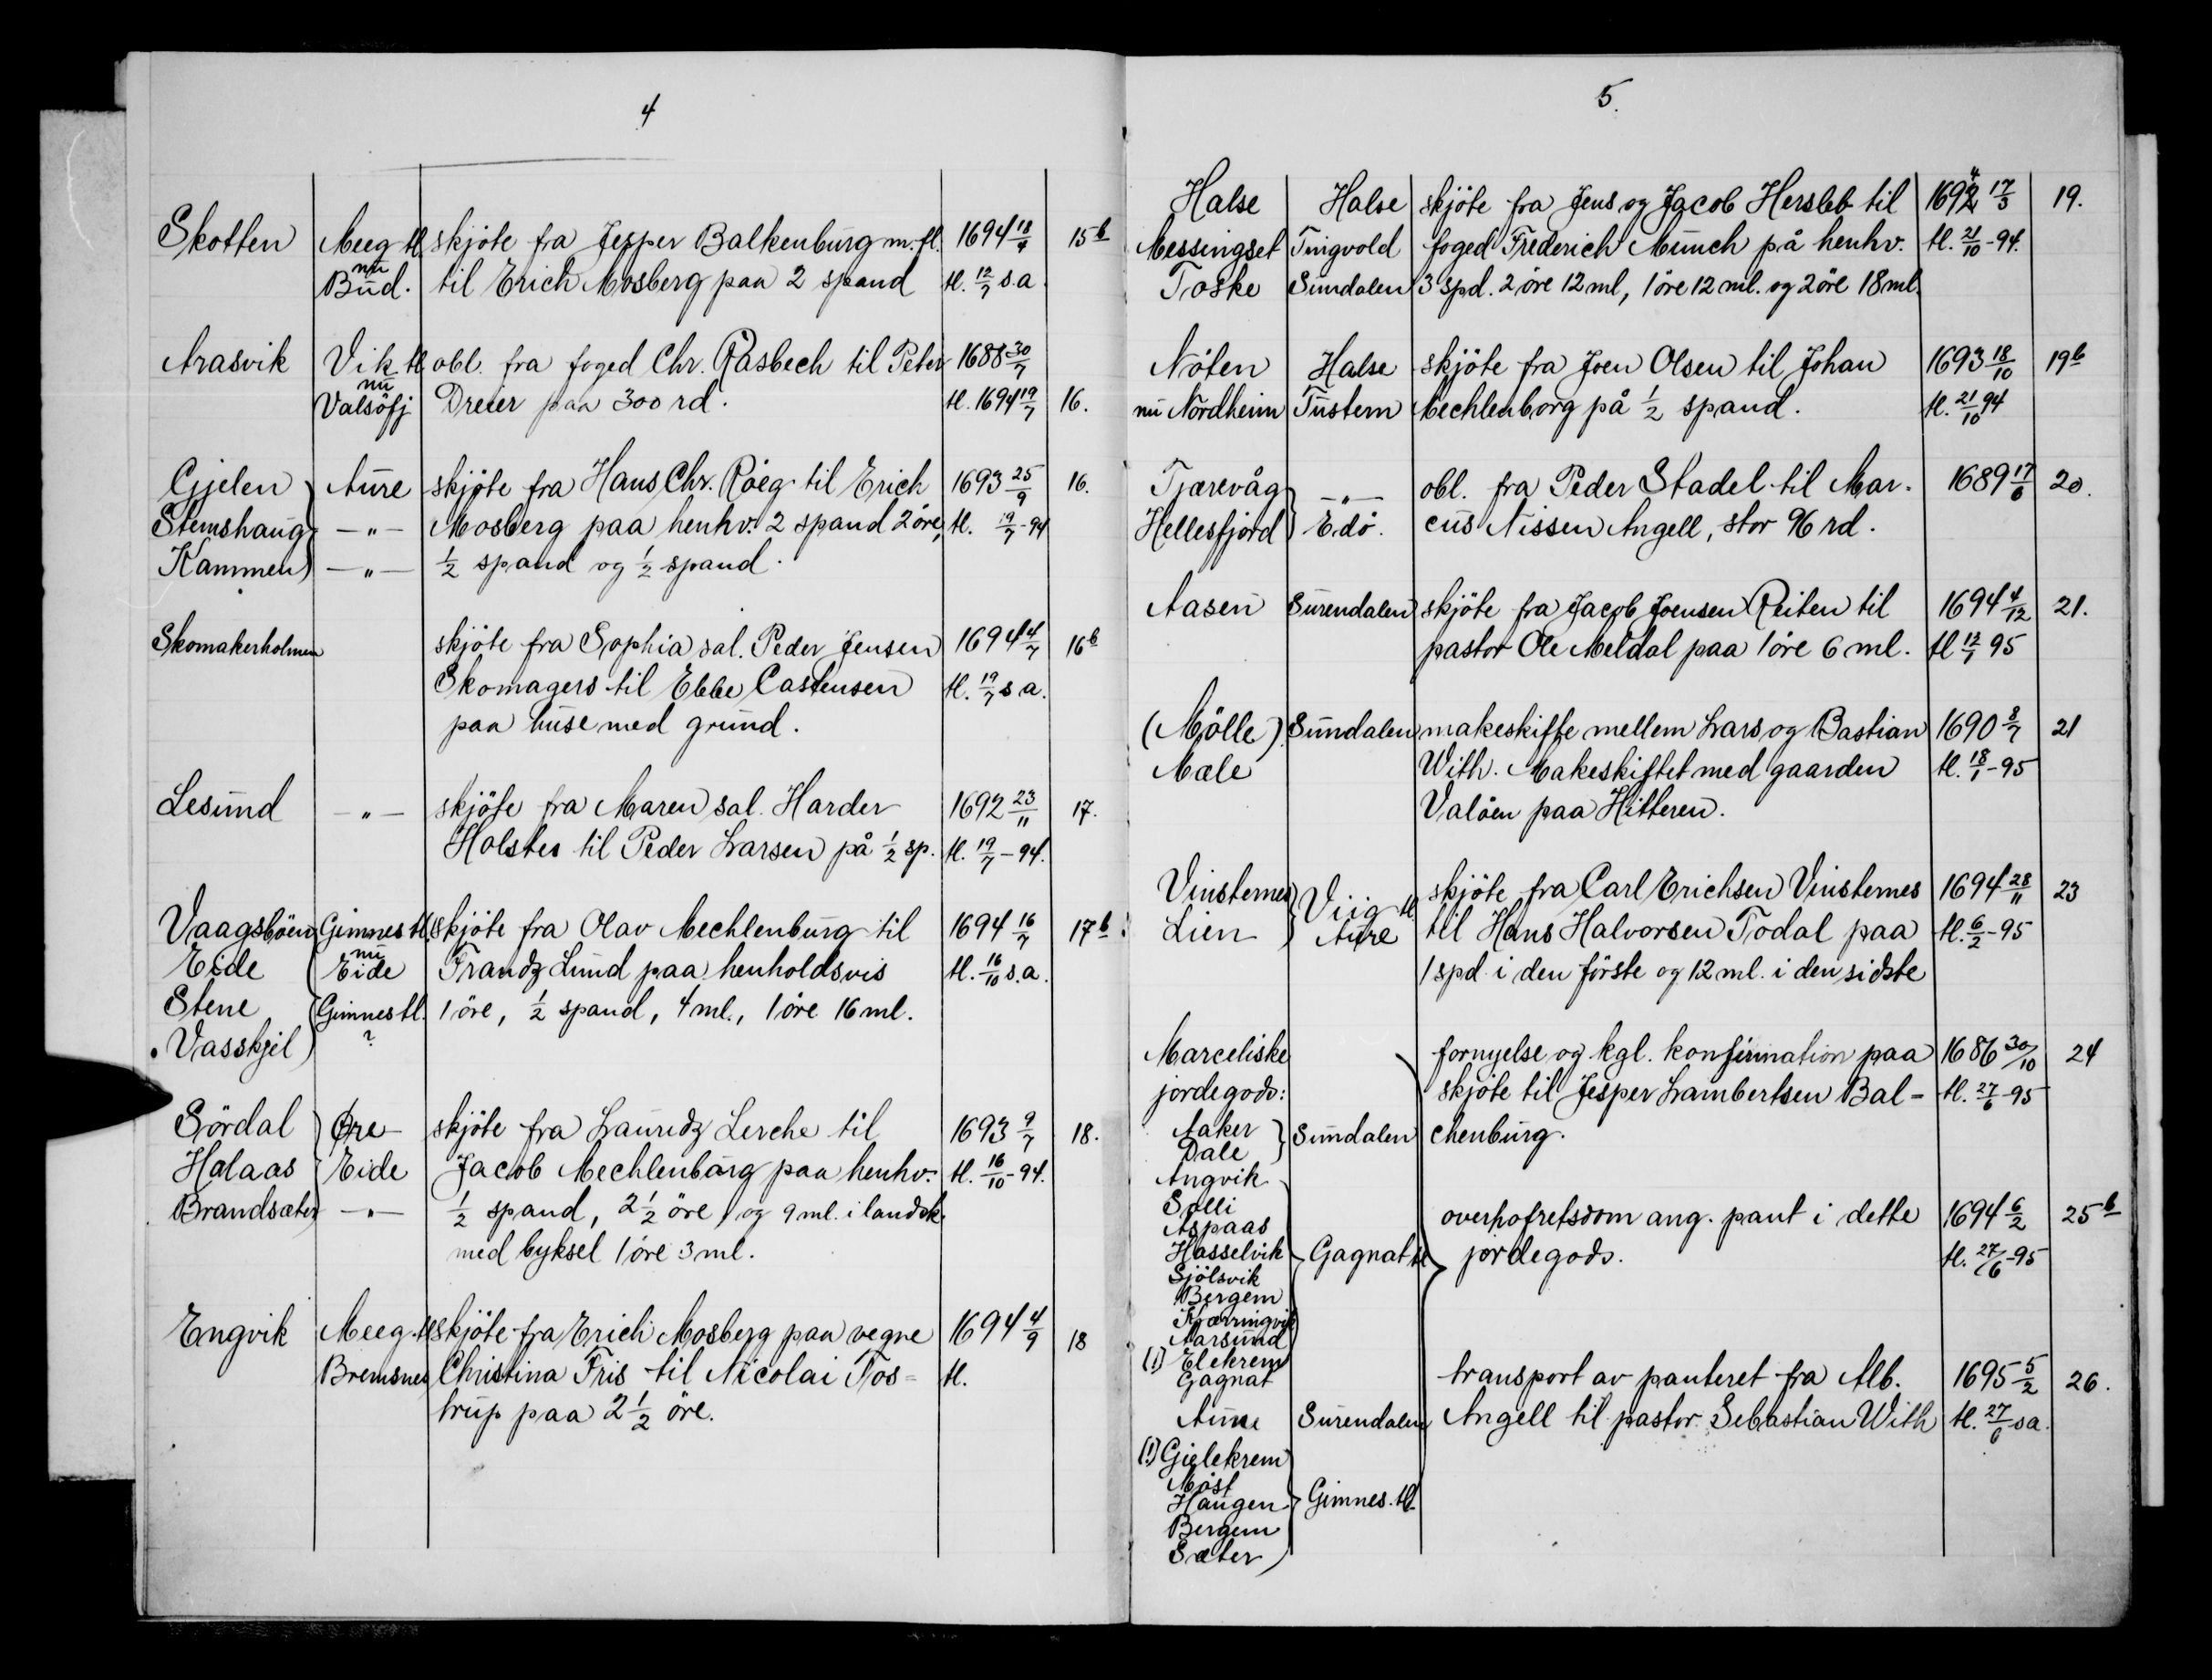 4
Skotten Meeg tl. skjöte fra Jesper Balkenburg m. fl. 1694 18/4 15b
nu Bud. til Erich Mosberg paa 2 spand tl. 12/7 s.a.
Arasvik Vik tl obl. fra foged Chr. Rasbech til Peter 1688 30/7
nu Valsöfj Dreier paa 300 rd. tl. 1694 19/7 16.
Gjelen Aure skjöte fra Hans Chr. Röeg til Erich 1693 25/9 16.
Stemshaug —"— Mosberg paa henhv. 2 spand 2 öre, tl. 19/7-94
Kammen —"— 1/2 spand og 1/2 spand.
Skomakerholmen skjöte fra Sophia sal. Peder Jensen 1694 4/7 16b
Skomagers til Ebbe Castensen tl. 19/7 s a.
paa huse med grund.
Lesund —"— skjöte fra Maren sal. Harder 1692 23/11 17.
Holstes til Peder Larsen på 1/2 sp. tl. 19/7-94.
Vaagsböen Gimnes tl. skjöte fra Olav Mechlenburg til 1694 16/7 17b
Eide nu Eide Frandz Lund paa henholdsvis tl. 16/10 s.a.
Stene Gimnes tl. 1 öre, 1/2 spand, 4 ml., 1 öre 16 ml.
. Vasskjel ?
Sördal Øre skjöte fra Lauridz Lerche til 1693 9/7 18.
Halaas Eide Jacob Mechlenburg paa henhv. tl. 16/10-94.
Brandsæter —"— 1/2 spand, 2 1/2 öre, og 9 ml. i landsk.
med byksel 1 öre 3 ml.
Engvik Meeg tl skjöte fra Erich Mosberg paa vegne 1694 4/9 18
Bremsnes Christina Fris til Nicolai Tos= tl.
trup paa 2 1/2 öre.
5.
Halse Halse skjöte fra Jens og Jacob Hersleb til 1692 4 17/5 19.
Messingset Tingvold foged Frederich Munch på henhv. tl. 21/10-94.
Toske Sundalen 3 spd. 2 öre 12 ml, 1 öre 12 ml. og 2 öre 18 ml.
Nöten Halse skjöte fra Joen Olsen til Johan 1693 18/10 19b
nu Nordheim Tustern Mechlenborg på 1/2 spand. tl. 21/10 94
Tjærevåg —"— obl. fra Peder Stadel til Mar- 1689 17/6 20.
Hellesfjord Edö. cus Nissen Angell, stor 96 rd.
Aasen Surendalen skjöte fra Jacob Joensen Reiten til 1694 4/12 21.
pastor Ole Meldal paa 1 öre 6 ml. tl 12/1 95
(Mölle) Sundalen makeskifte mellem Lars og Bastian 1690 8/7 21
Mæle With. Makeskiftet med gaarden tl. 18/1-95
Valöen paa Hitteren.
Vinsternes Viig tl. skjöte fra Carl Erichsen Vinsternes 1694 28/11 23
Lien Aure til Hans Halvorsen Todal paa tl. 6/2-95
1 spd i den förste og 12 ml. i den sidste
Marceliske fornyelse og kgl. konfirmation paa 1686 30/10 24
jordegods: skjöte til Jesper Lambertsen Bal- tl. 27/6-95
Aaker Sundalen chenburg.
Dale
Angvik
Solli overhofretsdom ang. pant i dette 1694 6/2 25b
Aspaas
Hasselvik Gagnat tl jordegods. tl. 27/6-95
Sjölsvik
Bergem
Kjærringvik
Aarsund
(!) Elekrem
Gagnat transport av panteret fra Alb. 1695 5/2 26.
Aune Surendalen Angell til pastor Sebastian With tl. 27/6 s a.
(!) Gielekrem
Möst
Haugen Gimnes. tl.
Bergem
Sæter